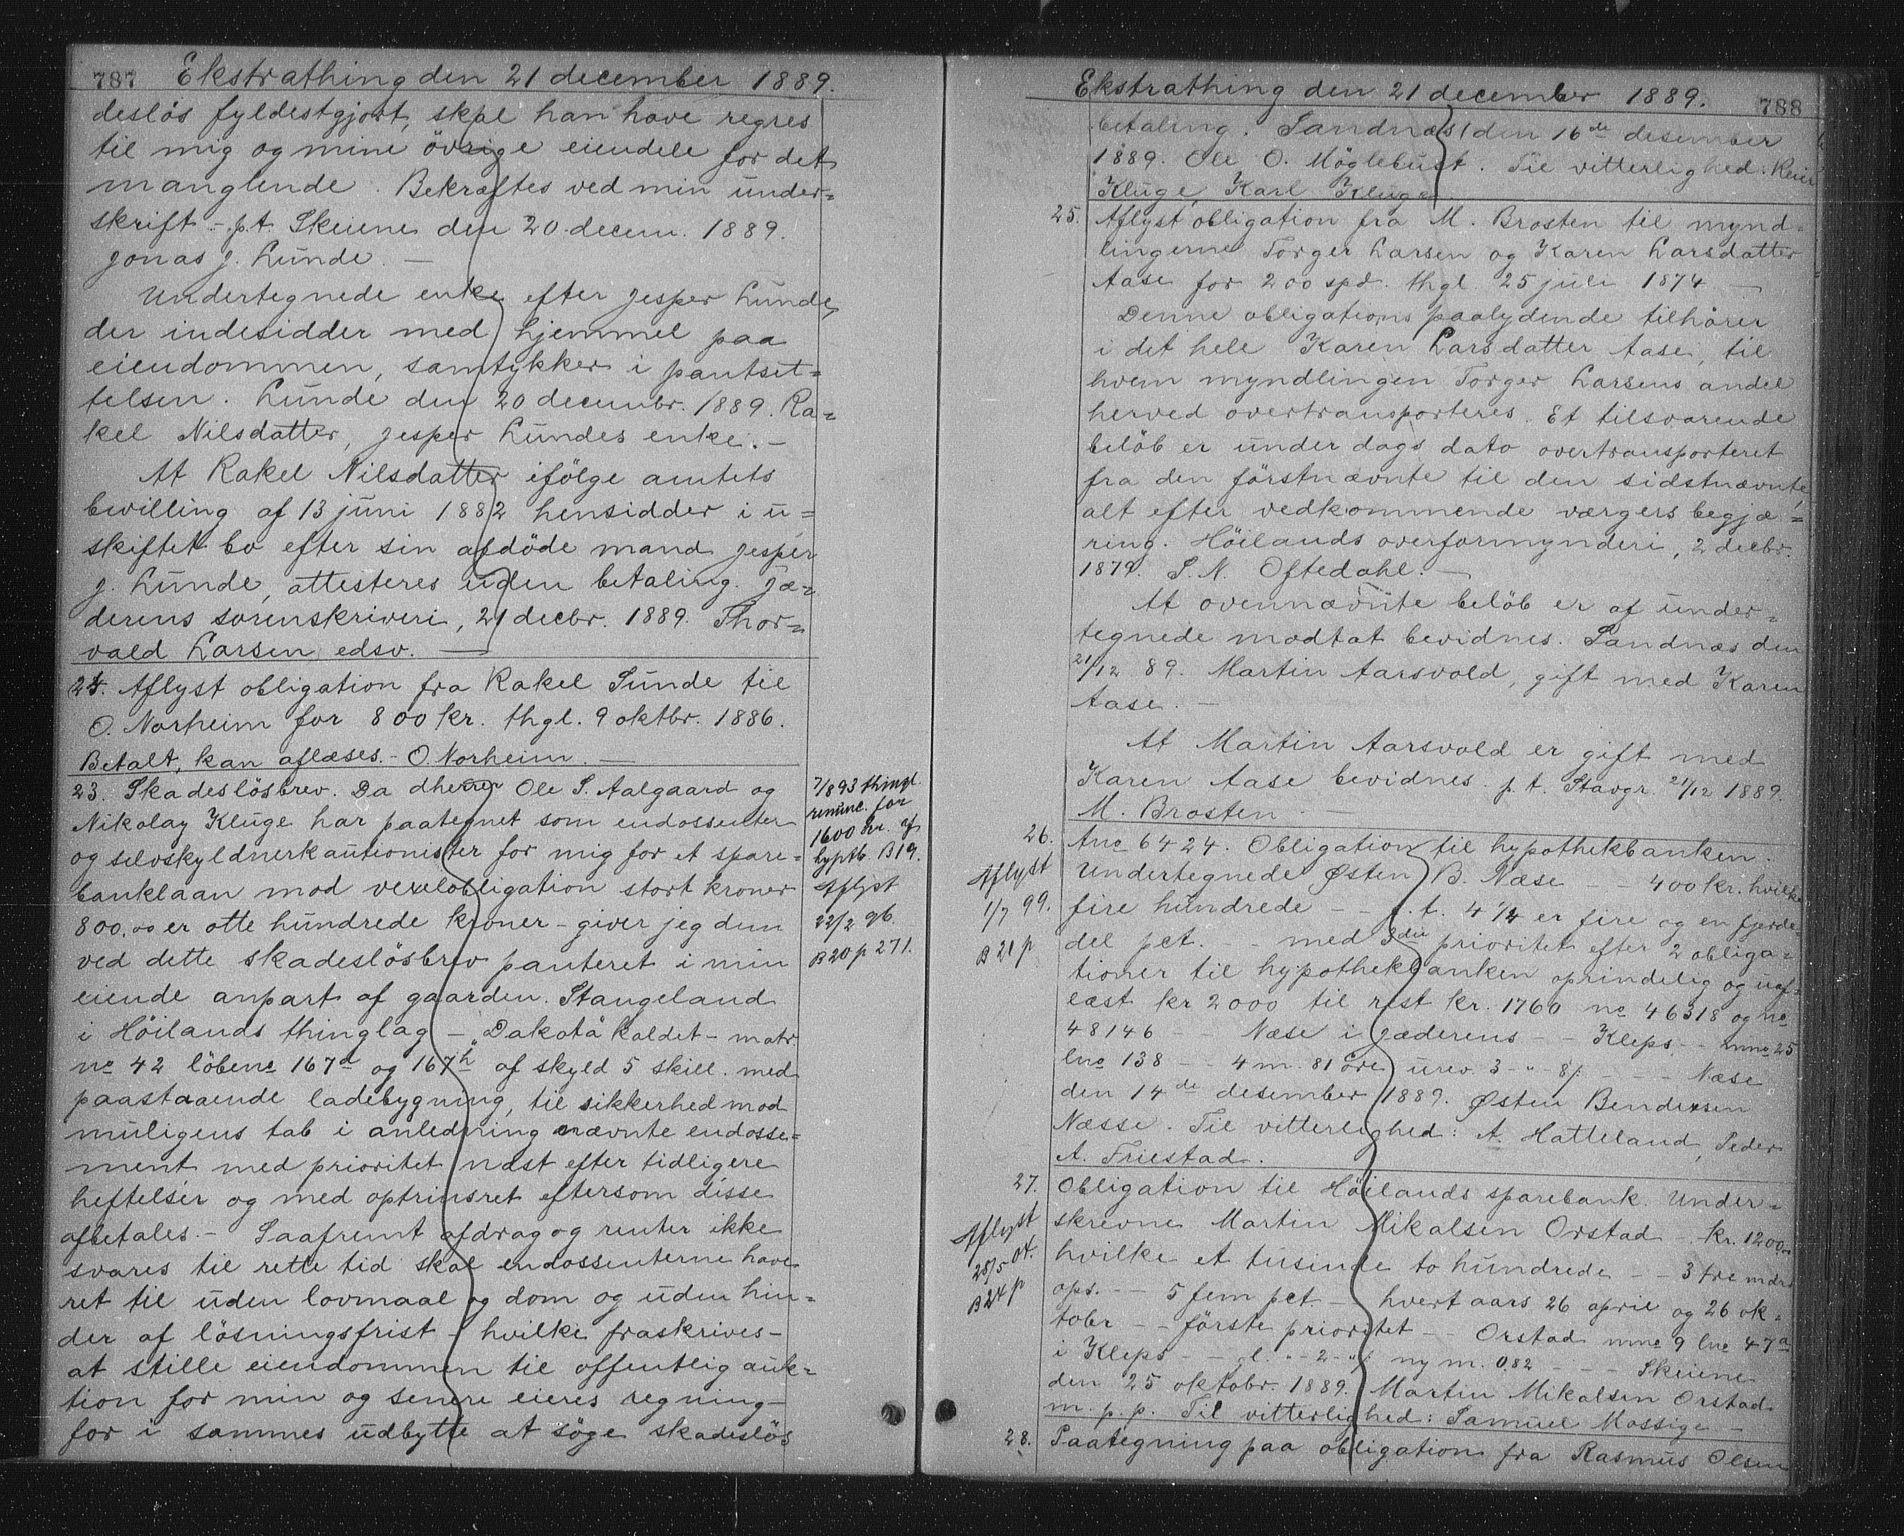 787 Ekstrathing den 21 december 1889.
deslös fyldestgjort, skal han have regres
til mig og mine övrige eiendele for det
manglende. Bekræftes ved min under=
skrift - p.t. Skeiene den 20. decem. 1889.
Jonas J. Lunde. —
Undertegnede enke efter Jesper Lunde,
der indesidder med hjemmel paa
eiendommen, samtykker i pantsæt=
telsen. Lunde den 20 decembr. 1889. Ra=
kel Nilsdatter, Jesper Lundes enke. -
At Rakel Nilsdatter ifölge amtets
bevilling af 13 juni 1882 hensidder i u=
skiftet bo efter sin afdöde mand Jesper
J. Lunde, attesteres uden betaling. Jæ=
derens sorenskriveri, 21 decbr. 1889. Thor=
vald Larsen edsv. —
24. Aflyst obligation fra Rakel Lunde til
O. Norheim for 800 kr. thgl. 9 oktbr. 1886.
Betalt, kan aflæses. - O. Norheim. —
23. Skadeslösbrev. Da dherrer Ole S. Aalgaard og
Nikolay Kluge har paategnet som endossenter
og selvskyldnerkautionister for mig for et spare=
banklaan mod vexelobligation stort kroner
800.00 er otte hundrede kroner - giver jeg dem
ved dette skadeslösbrev panteret i min
eiende anpart af gaarden Stangeland
i Höilands thinglag - „Dakota" kaldet - matr
no 42 löbeno 167d og 167h af skyld 5 skill. med
paastaaende ladebygning, til sikkerhed mod
muligens tab i anledning nævnte endosse=
ment med prioritet næst efter tidligere
heftelser og med optrinsret eftersom disse
afbetales. - Saafremt afdrag og renter ikke
svares til rette tid skal endossenterne have
ret til uden lovmaal og dom og uden hin=
der af lösningsfrist - hvilke fraskrives -
at stille eiendommen til offentlig auk=
tion for min og senere eieres regning -
for i sammes udbytte at söge skadeslös
7/8 93 thingl.
renunc. for
1600 kr. af
hyptb. B 19.
Aflyst
22/2 96.
B 20 p 271.
Ekstrathing den 21 december 1889. 788
betaling. Sandnæs den 16de desember
1889. Ole O. Möglebust. Til vitterlighed: Reier
Kluge, Karl Kluge
25. Aflyst obligation fra M. Brosten til mynd=
lingerne Torger Larsen og Karen Larsdatter
Aase for 200 spd. thgl. 25 juli 1874. —
Denne obligations paalydende tilhörer
i det hele Karen Larsdatter Aase, til
hvem myndlingen Torger Larsens andel
herved overtransporteres. Et tilsvarende
belöb er under dags dato overtransporteret
fra den förstnævnte til den sidstnævnte,
alt efter vedkommende værgers begjæ=
ring. Höilands overformynderi, 2 decbr.
1879. S. N. Oftedahl. —
At ovennævnte belöb er af under=
tegnede modtat bevidnes. Sandnæs den
21/12 89. Martin Aarsvold, gift med Karen
Aase. —
At Martin Aarsvold er gift med
Karen Aase bevidnes. p. t. Stavgr. 21/12 1889.
M. Brosten —
26. Ano 6424. Obligation til hypothekbanken.
Undertegnede Østen B. Næse - - 400 kr. hvilke
fire hundrede - - p. t. 4 1/4 er fire og en fjerde=
del pct. - - med 3die prioritet efter 2 obliga=
tioner til hypothekbanken oprindelig og uaf=
læst kr 2000 til rest kr. 1760 no 46318 og no
48146 - Næse i Jæderens - - Kleps - - mno 25
lno 138 - - 4 m. 81 öre urev. 3 - " - 8 /: - - - Næse
den 14de desember 1889. Østen Bendixsen
Næsse. Til vitterlighed: A. Hatteland, Peder
A. Friestad.
Aflyst
1/7 99.
B 21 p
27. Obligation til Höilands sparebank. Under=
skrevne Martin Mikalsen Orstad - kr. 1200,00
hvilke et tusinde to hundrede - - 3 tre mdrs
ops. - - 5 fem pct. - hvert aars 26 april og 26 ok=
tober - - förste prioritet - - Orstad mno 9 lno 47a
i Kleps - - gl. " - 2 - " ny m. 0.82 - - - Skeiene
den 25 oktobr. 1889. Martin Mikalsen Orstad
m. p. p. Til vitterlighed: Samuel Mossige -
Aflyst
25/5 04.
B 24 p
28. Paategning paa obligation fra Rasmus Olsen